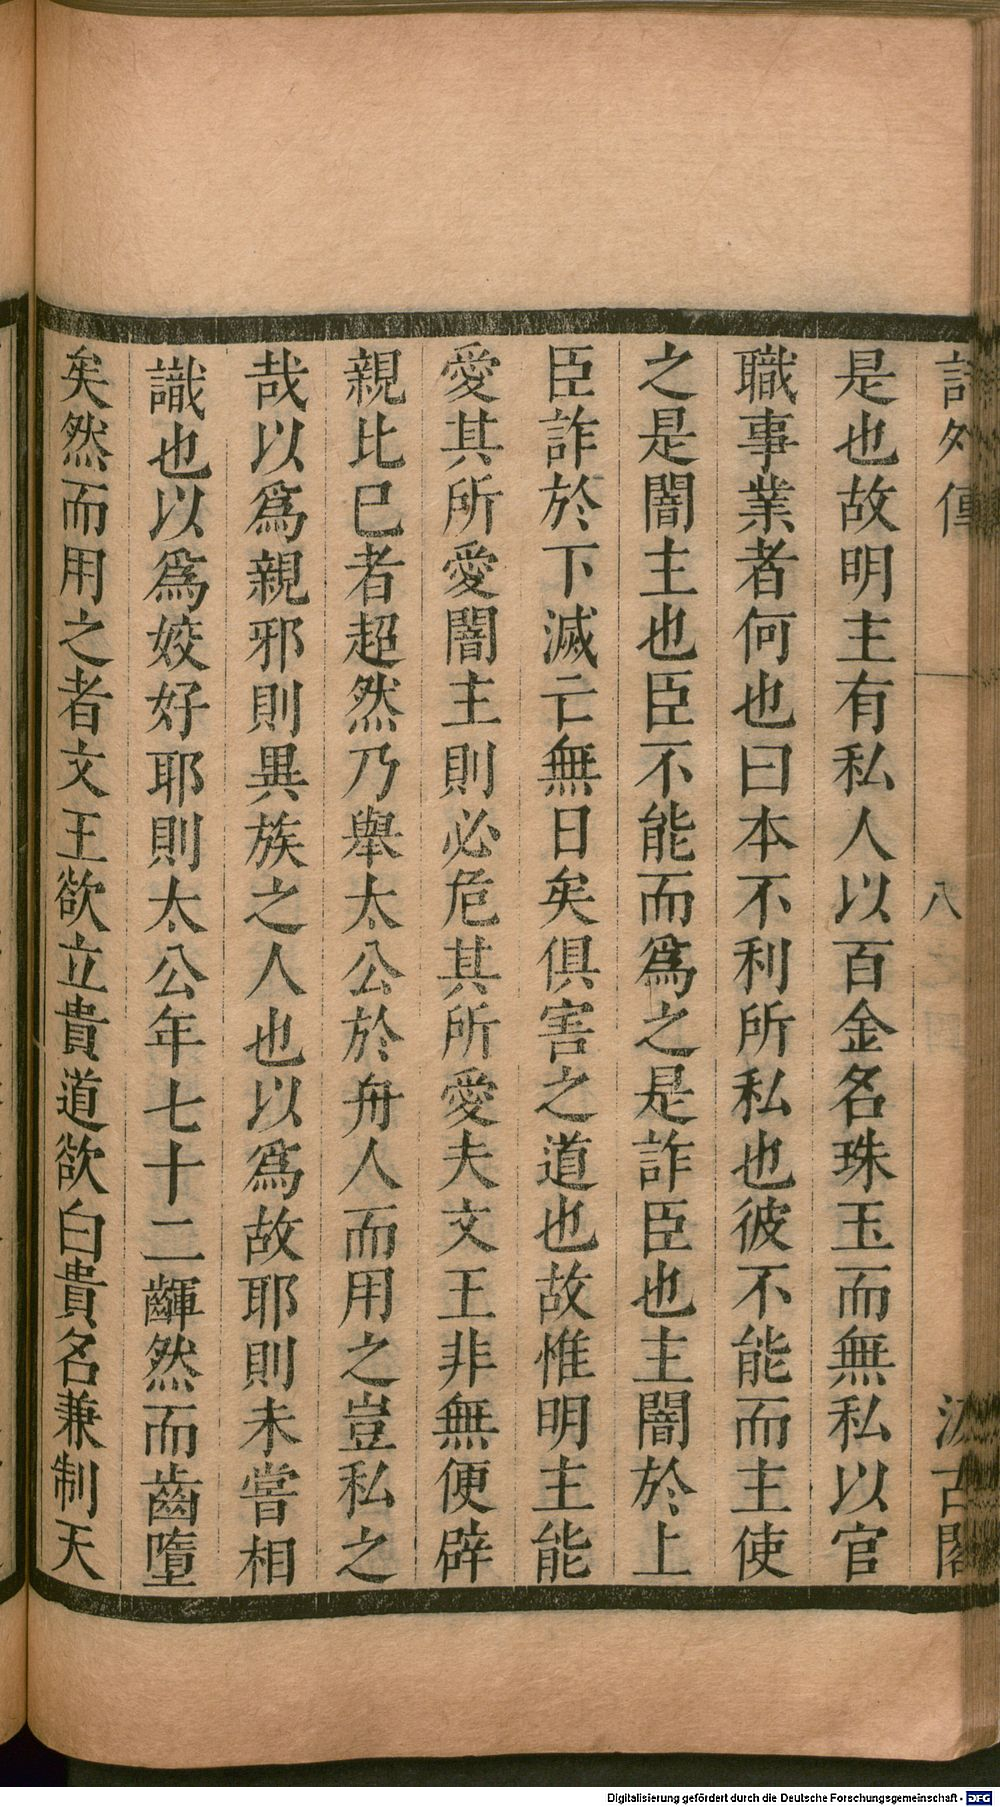 詩外傳　八　汲古閣
是也故明主有私人以百金名珠玉而無私以官
職事業者何也曰本不利所私也彼不能而主使
之是闇主也臣不能而爲之是詐臣也主闇於上
臣詐於下滅亡無日矣俱害之道也故惟明主能
愛其所愛闇主則必危其所愛夫文王非無便辟
親比已者超然乃舉太公於舟人而用之豈私之
哉以爲親邪則異族之人也以爲故耶則未嘗相
識也以爲姣好耶則太公年七十二齳然而齒墮
矣然而用之者文王欲立貴道欲白貴名兼制天
Digitalisierung gefördert durch die Deutsche Forschungsgemeinschaft - DFG